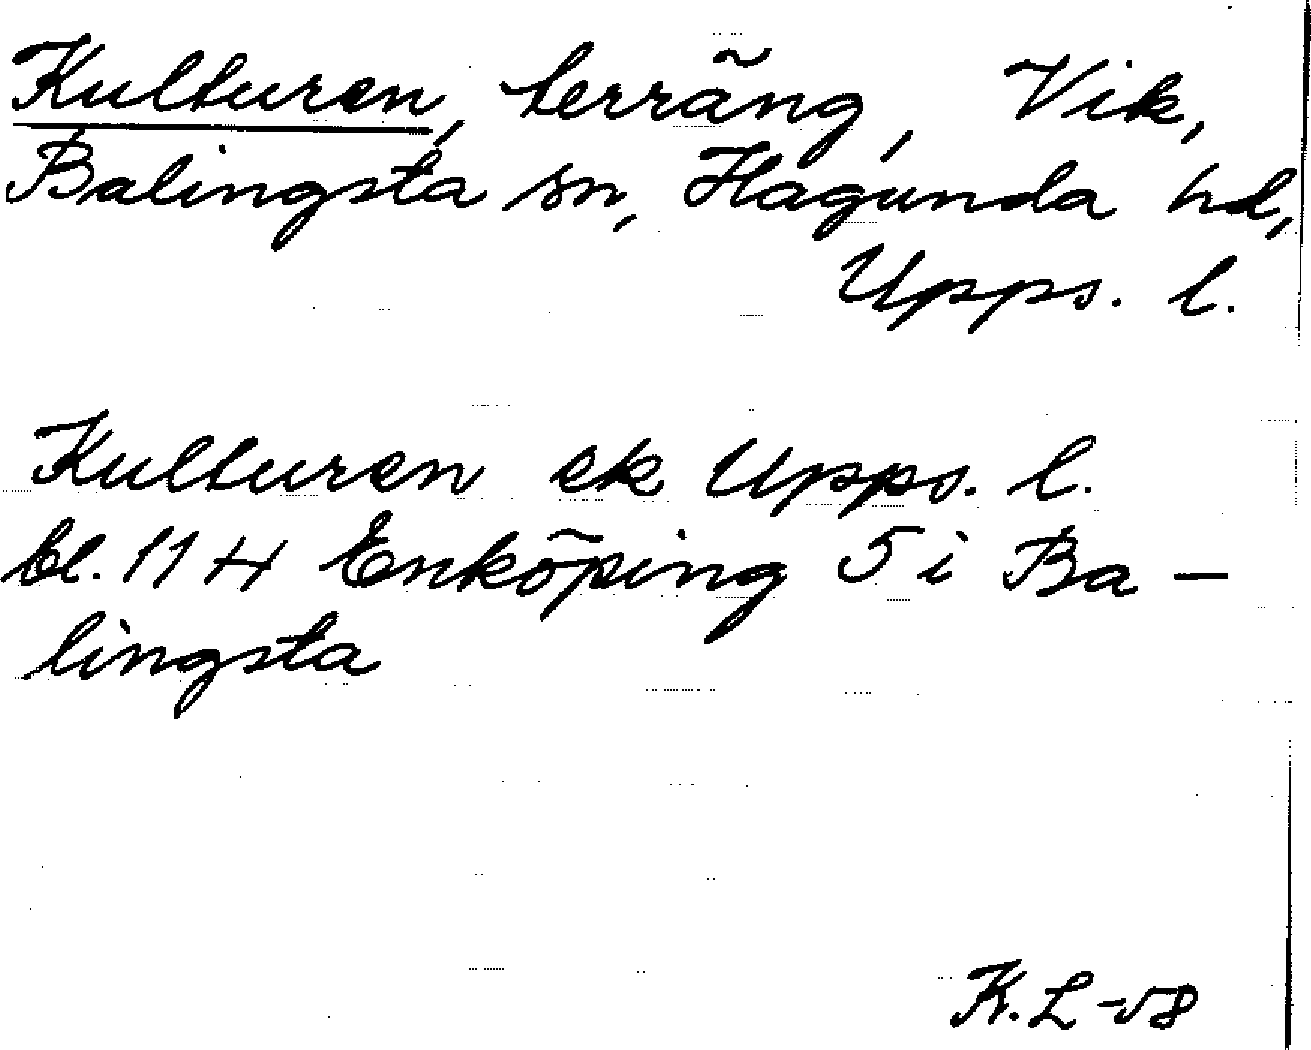 Kulturen, terräng, Vik,
Balingsta sn, Hagunda hd,
Upps. l.
Kulturen ek Upps. l.
bl. 114 Enköping 5 i Ba-
lingsta
K.L-58